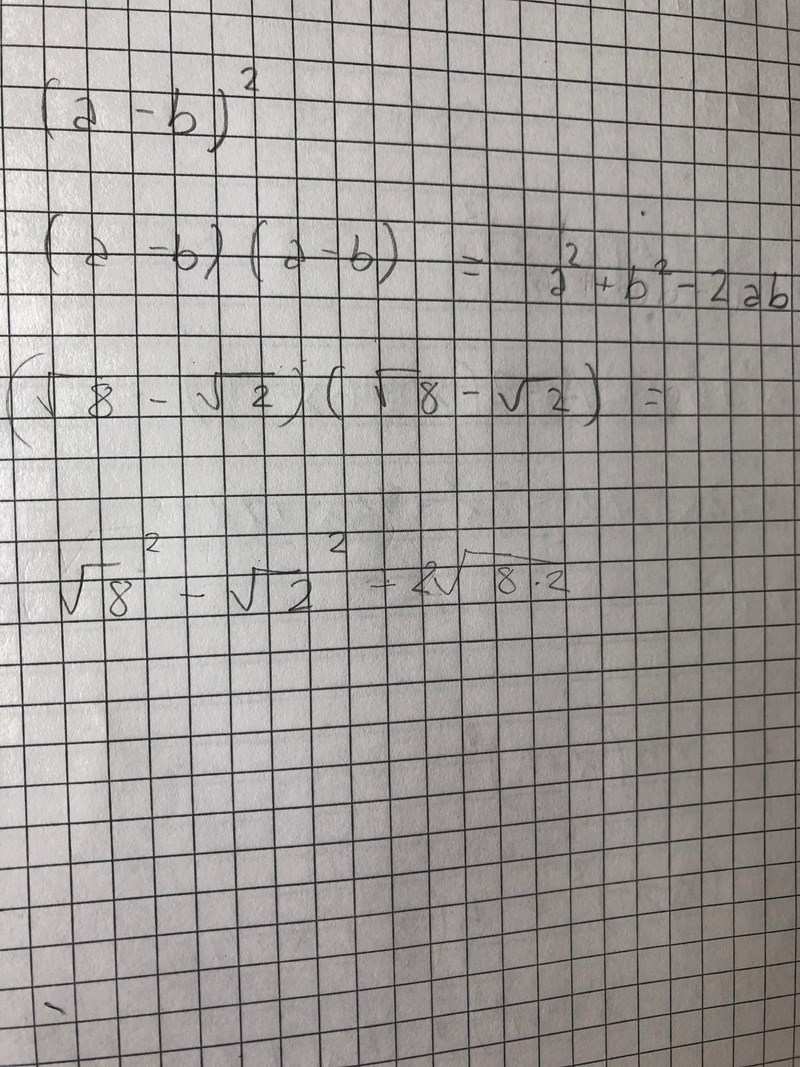 (a - b)²
(a - b) (a - b) = a² + b² - 2ab
(√8 - √2) (√8 - √2) =
√8² - √2² - 2√8·2